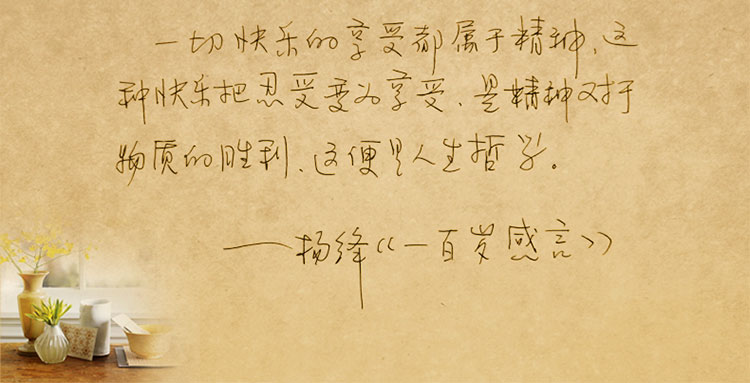 一切快乐的享受都属于精神、这
种快乐把忍受变为享受、是精神对于
物质的胜利、这便是人生哲学。
——杨绛《一百岁感言》